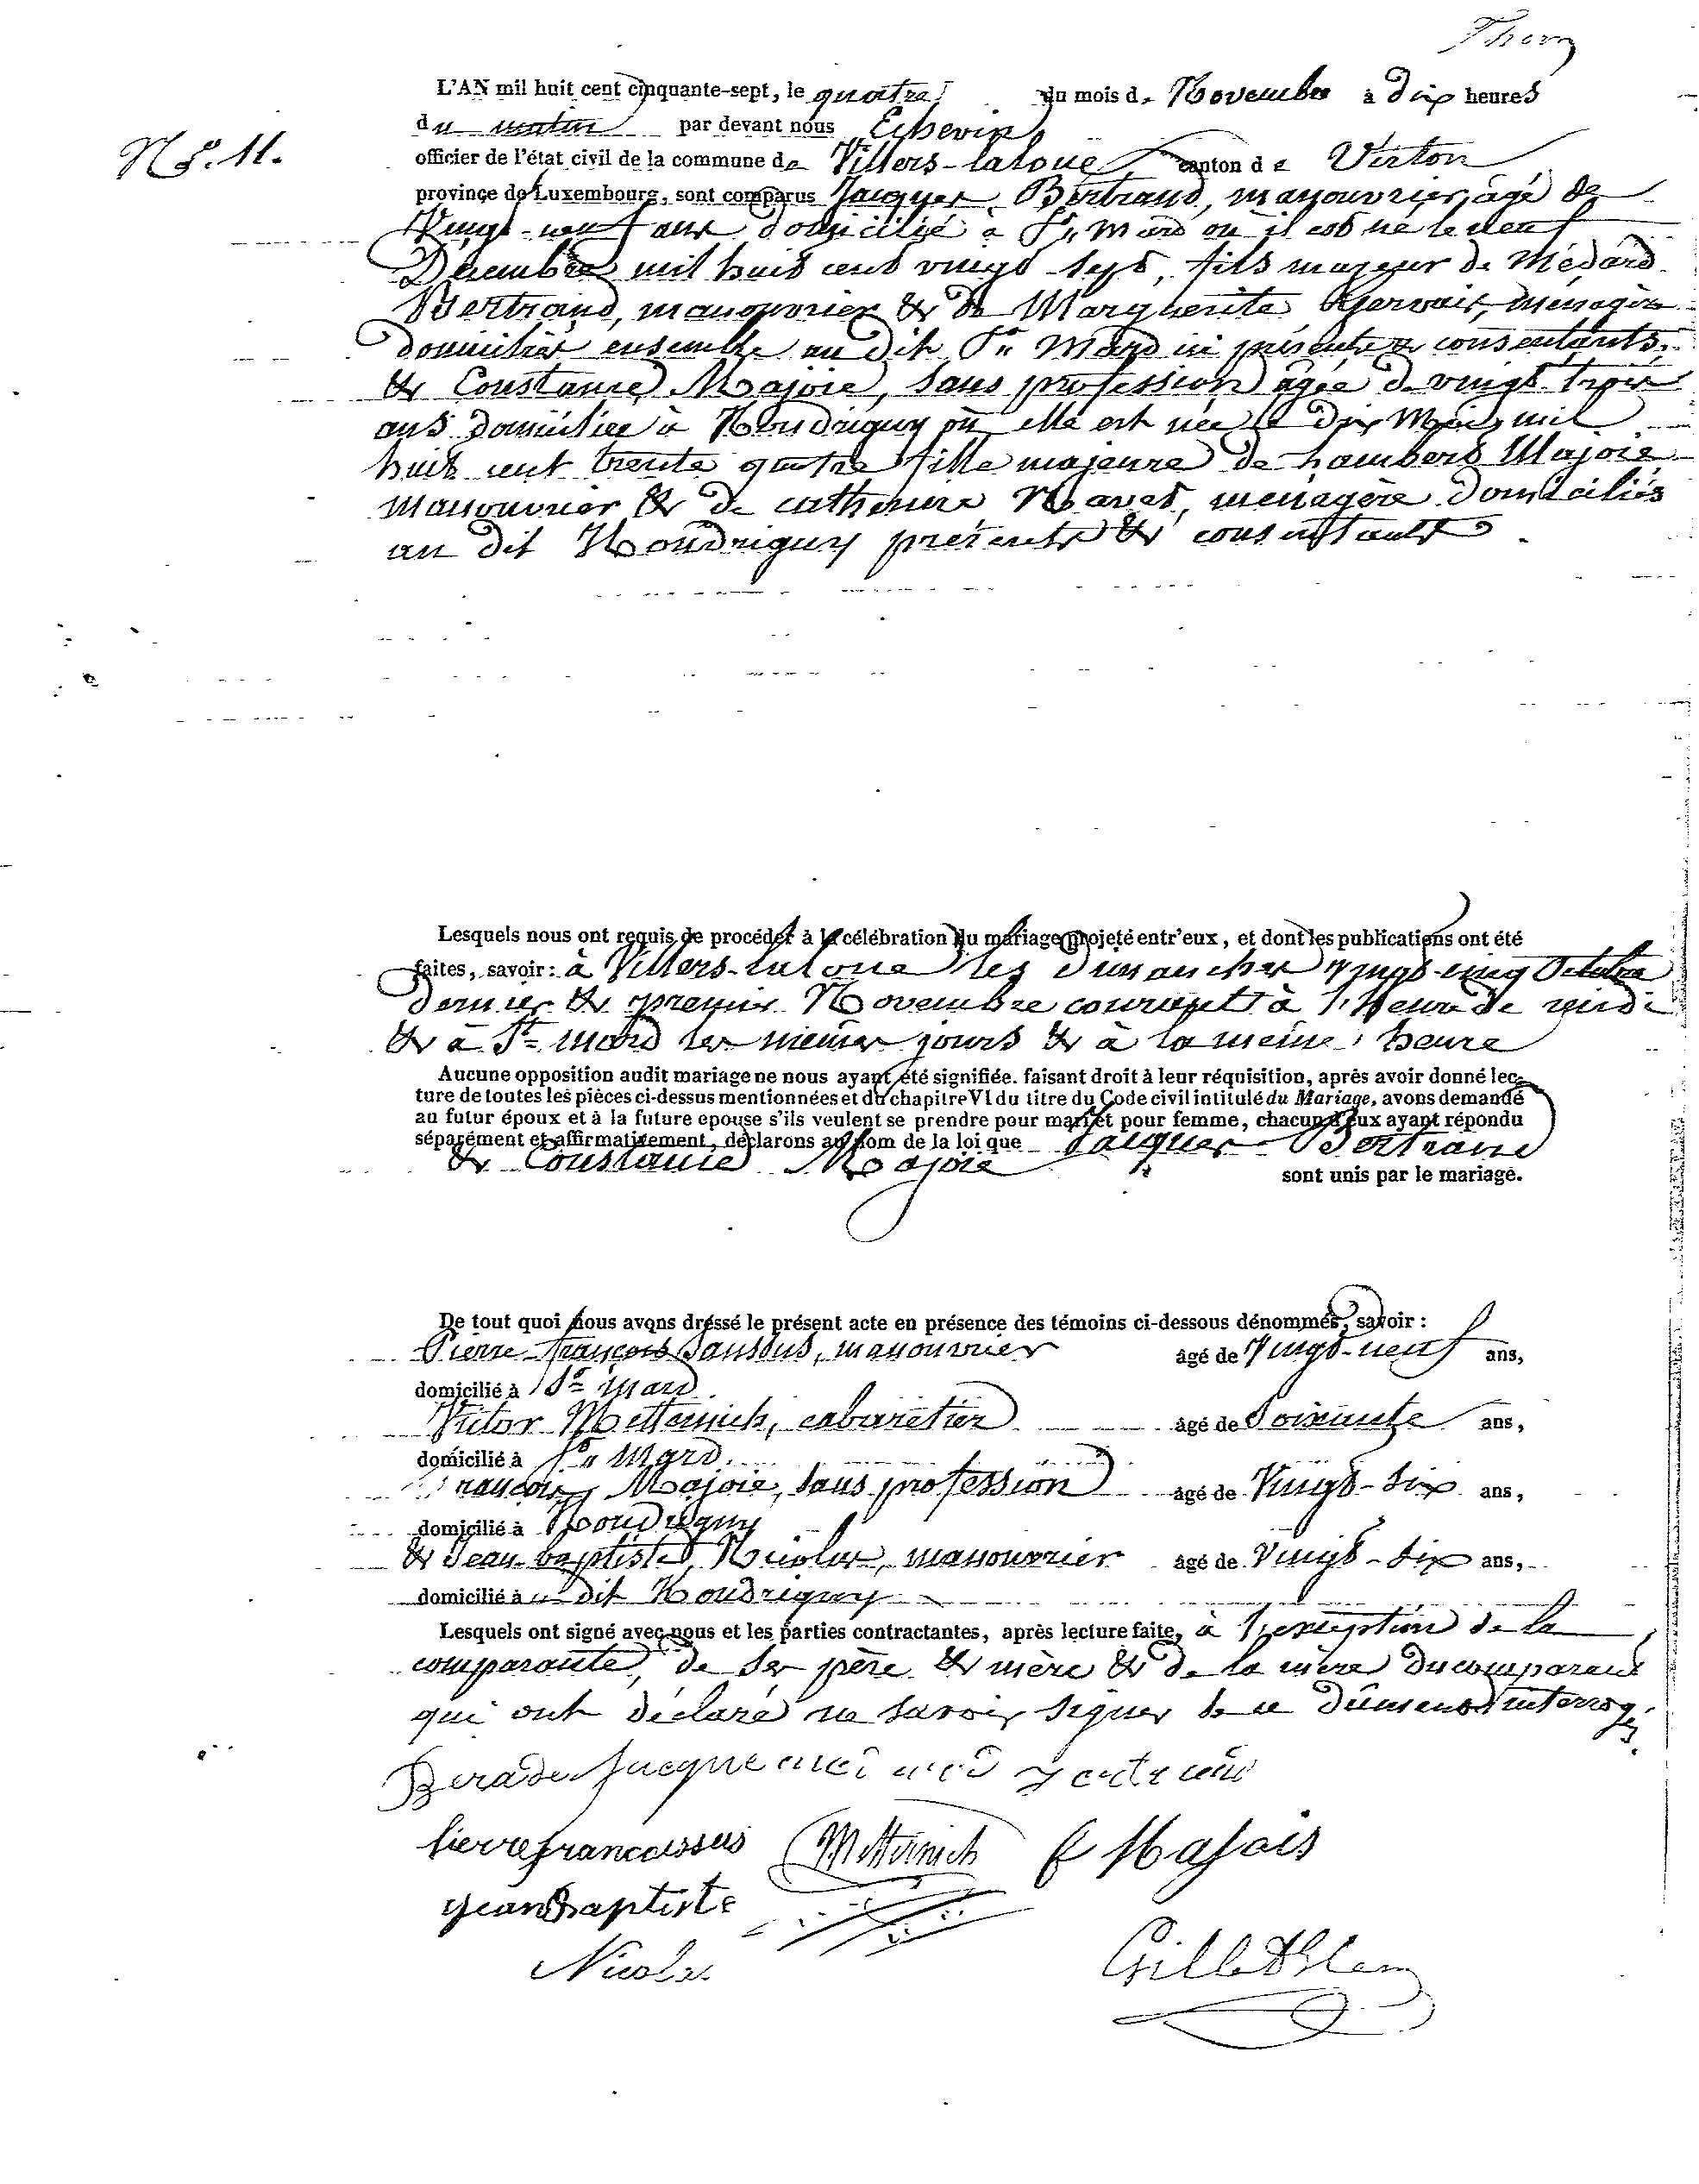 N°. 11.
L'AN mil huit cent cinquante-sept, le quatre du mois de Novembre à dix heures
du matin par devant nous Echevin
officier de l'état civil de la commune de Villers-laloue canton de Virton
province de Luxembourg, sont comparus Jacques Bertrand, manouvrier, âgé de
Vingt-neuf ans domicilié à St. Mard où il est né le neuf
Décembre mil huit cent vingt-sept, fils majeur de Médard
Bertrand, manouvrier & de Marguerite Gervais, ménagère
domiciliés ensemble au dit St. Mard ici présents & consentants,
& Constance Majoie, sans profession âgée de vingt trois
ans domiciliée à Houdrigny où elle est née le dix Mars mil
huit cent trente quatre fille majeure de Lambert Majoie
manouvrier & de catherine Navet, ménagère domiciliés
au dit Houdrigny présents & consentants.
Lesquels nous ont requis de procéder à la célébration du mariage projeté entr'eux, et dont les publications ont été
faites, savoir: à Villers-laloue les dimanches vingt-cinq Octobre
dernier & premier Novembre courant à l'heure de midi
& à St. Mard les mêmes jours & à la même heure
Aucune opposition audit mariage ne nous ayant été signifiée. faisant droit à leur réquisition, après avoir donné lec-
ture de toutes les pièces ci-dessus mentionnées et du chapitre VI du titre du Code civil intitulé du Mariage, avons demandé
au futur époux et à la future epouse s'ils veulent se prendre pour mari et pour femme, chacun d'eux ayant répondu
séparément et affirmativement, déclarons au nom de la loi que Jacques Bertrand
& Constance Majoie
sont unis par le mariage.
De tout quoi nous avons dressé le présent acte en présence des témoins ci-dessous dénommés, savoir:
Pierre-françois Saussus, manouvrier âgé de Vingt-neuf ans,
domicilié à St. Mard
Victor Metternich, cabaretier âgé de Soixante ans,
domicilié à St. Mard.
François Majoie, sans profession âgé de Vingt-six ans,
domicilié à Houdrigny
& Jean-baptiste Nicolas, manouvrier âgé de Vingt-six ans,
domicilié à u dit Houdrigny
Lesquels ont signé avec nous et les parties contractantes, après lecture faite, à l'exception de la
comparante, de ses père & mère & de la mère du comparant
qui ont déclaré ne savoir signer de ce dûment interrogés.
Jacque
Metternich F Majois
Jean Baptiste
Nicolas